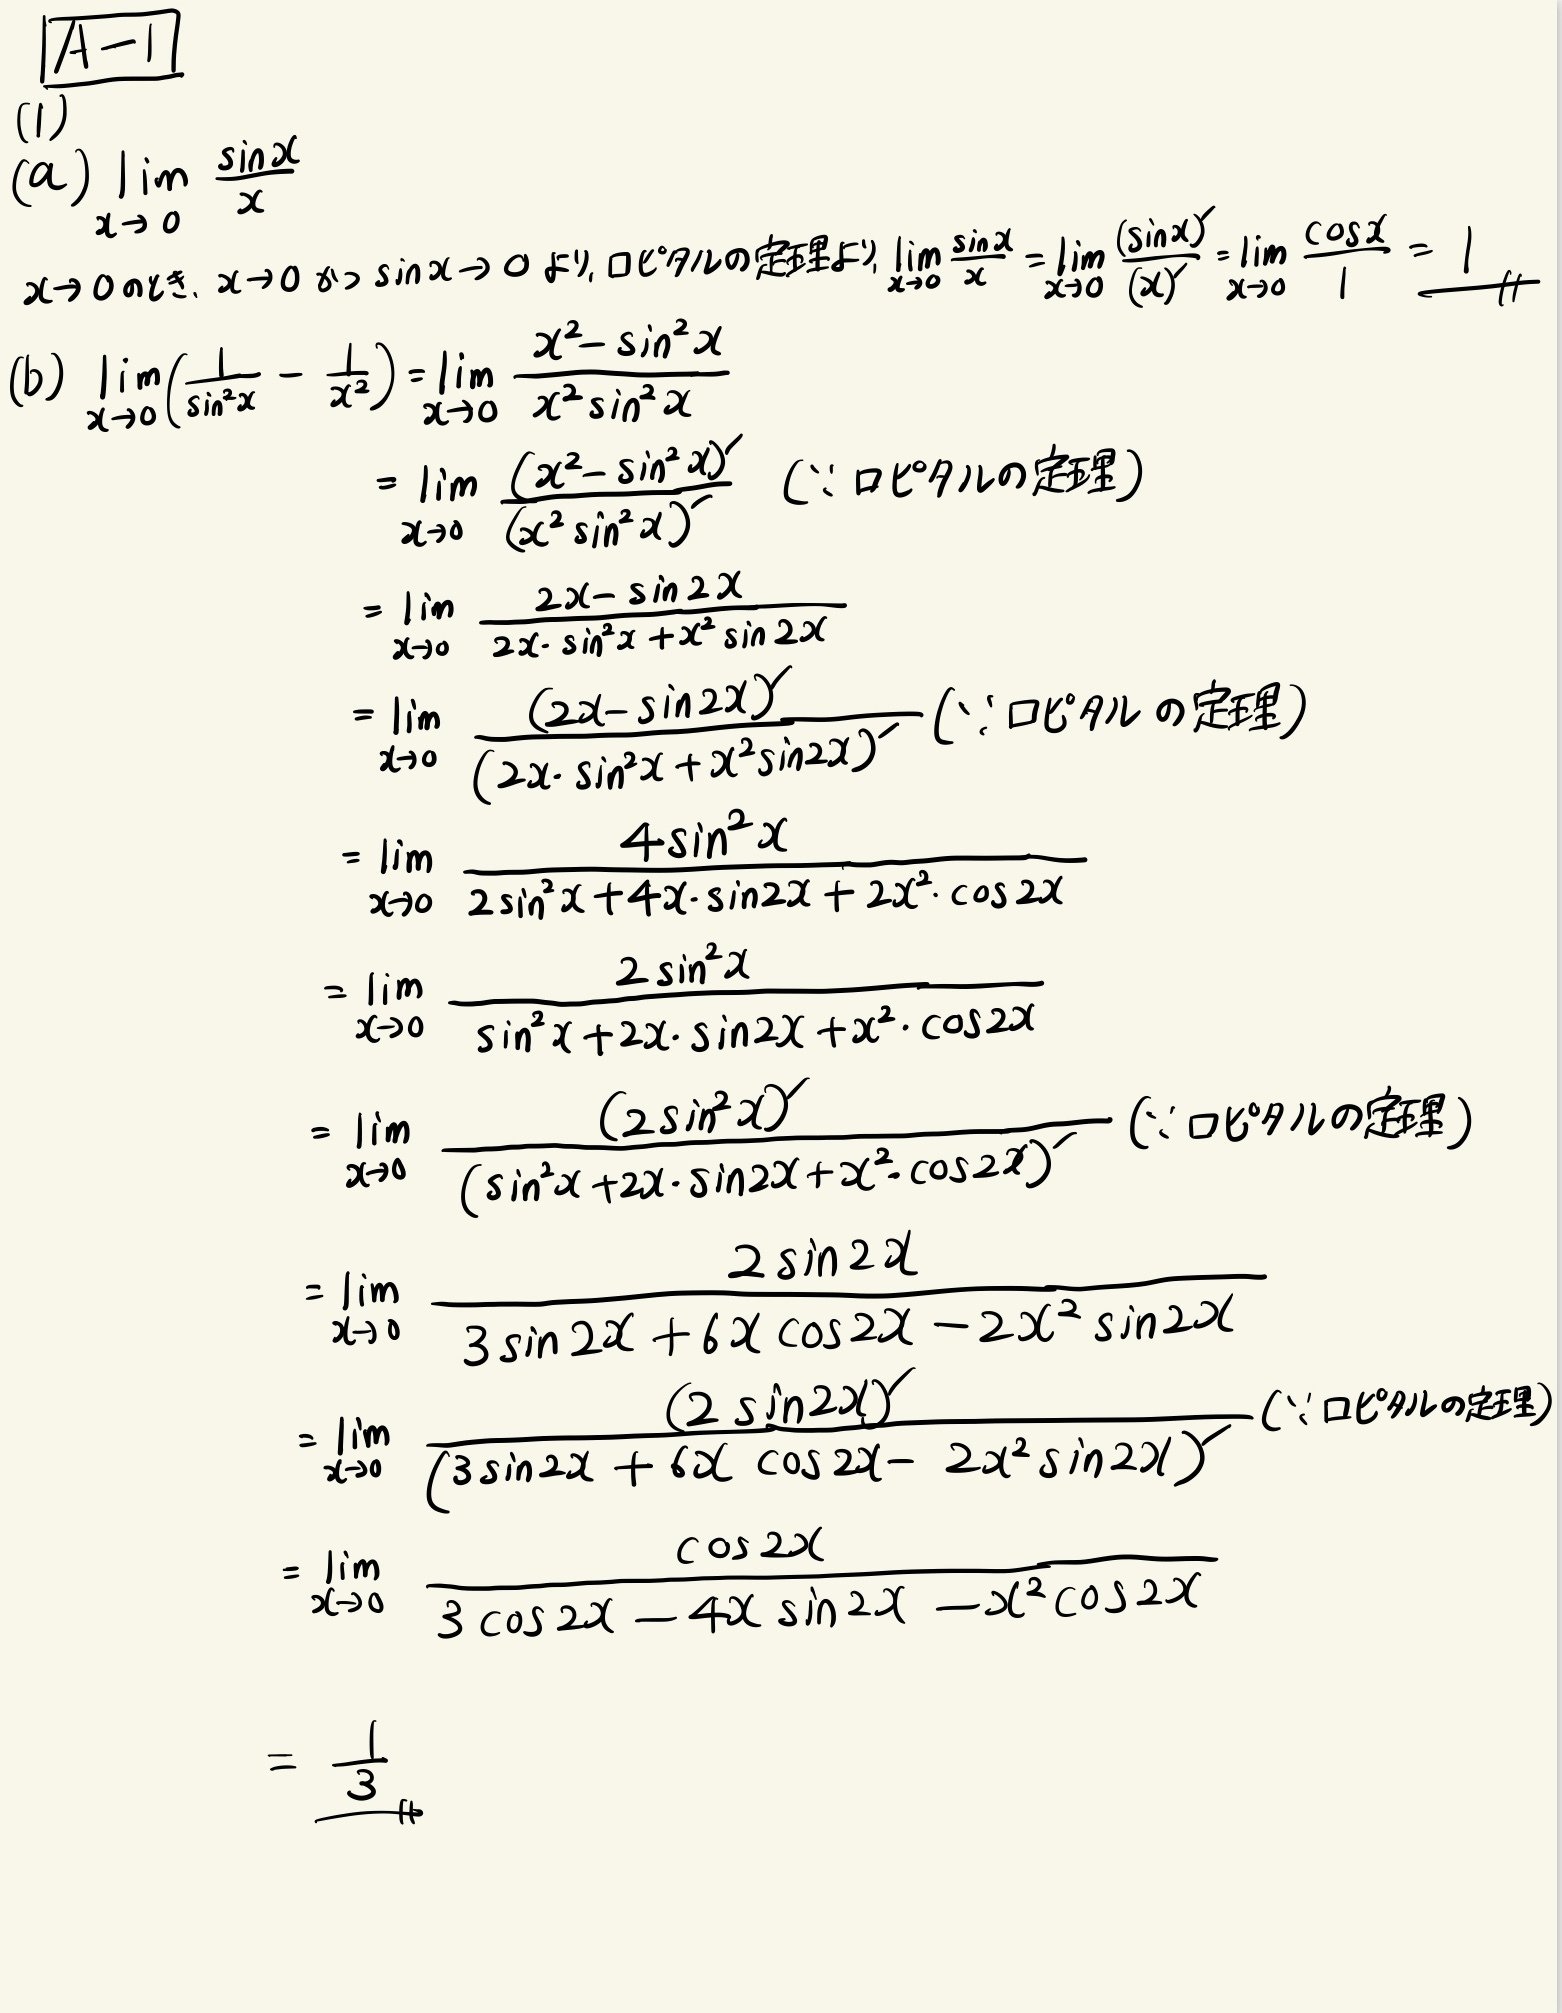 A-1
(1)
(a) lim_{x→0} sinx/x
x→0のとき、x→0かつsinx→0より、ロピタルの定理より、lim_{x→0} sinx/x = lim_{x→0} (sinx)′/(x)′ = lim_{x→0} cosx/1 = 1
(b) lim_{x→0} (1/sin²x - 1/x²) = lim_{x→0} (x²-sin²x)/(x² sin²x)
= lim_{x→0} (x²-sin²x)′/(x² sin²x)′ (∵ロピタルの定理)
= lim_{x→0} (2x-sin2x)/(2x・sin²x+x² sin2x)
= lim_{x→0} (2x-sin2x)′/(2x・sin²x+x²sin2x)′ (∵ロピタルの定理)
= lim_{x→0} 4sin²x/(2sin²x+4x・sin2x+2x²・cos2x)
= lim_{x→0} 2sin²x/(sin²x+2x・sin2x+x²・cos2x)
= lim_{x→0} (2sin²x)′/(sin²x+2x・sin2x+x²・cos2x)′ (∵ロピタルの定理)
= lim_{x→0} 2sin2x/(3sin2x+6x cos2x-2x² sin2x)
= lim_{x→0} (2sin2x)′/(3sin2x+6x cos2x-2x²sin2x)′ (∵ロピタルの定理)
= lim_{x→0} cos2x/(3cos2x-4x sin2x-x²cos2x)
= 1/3